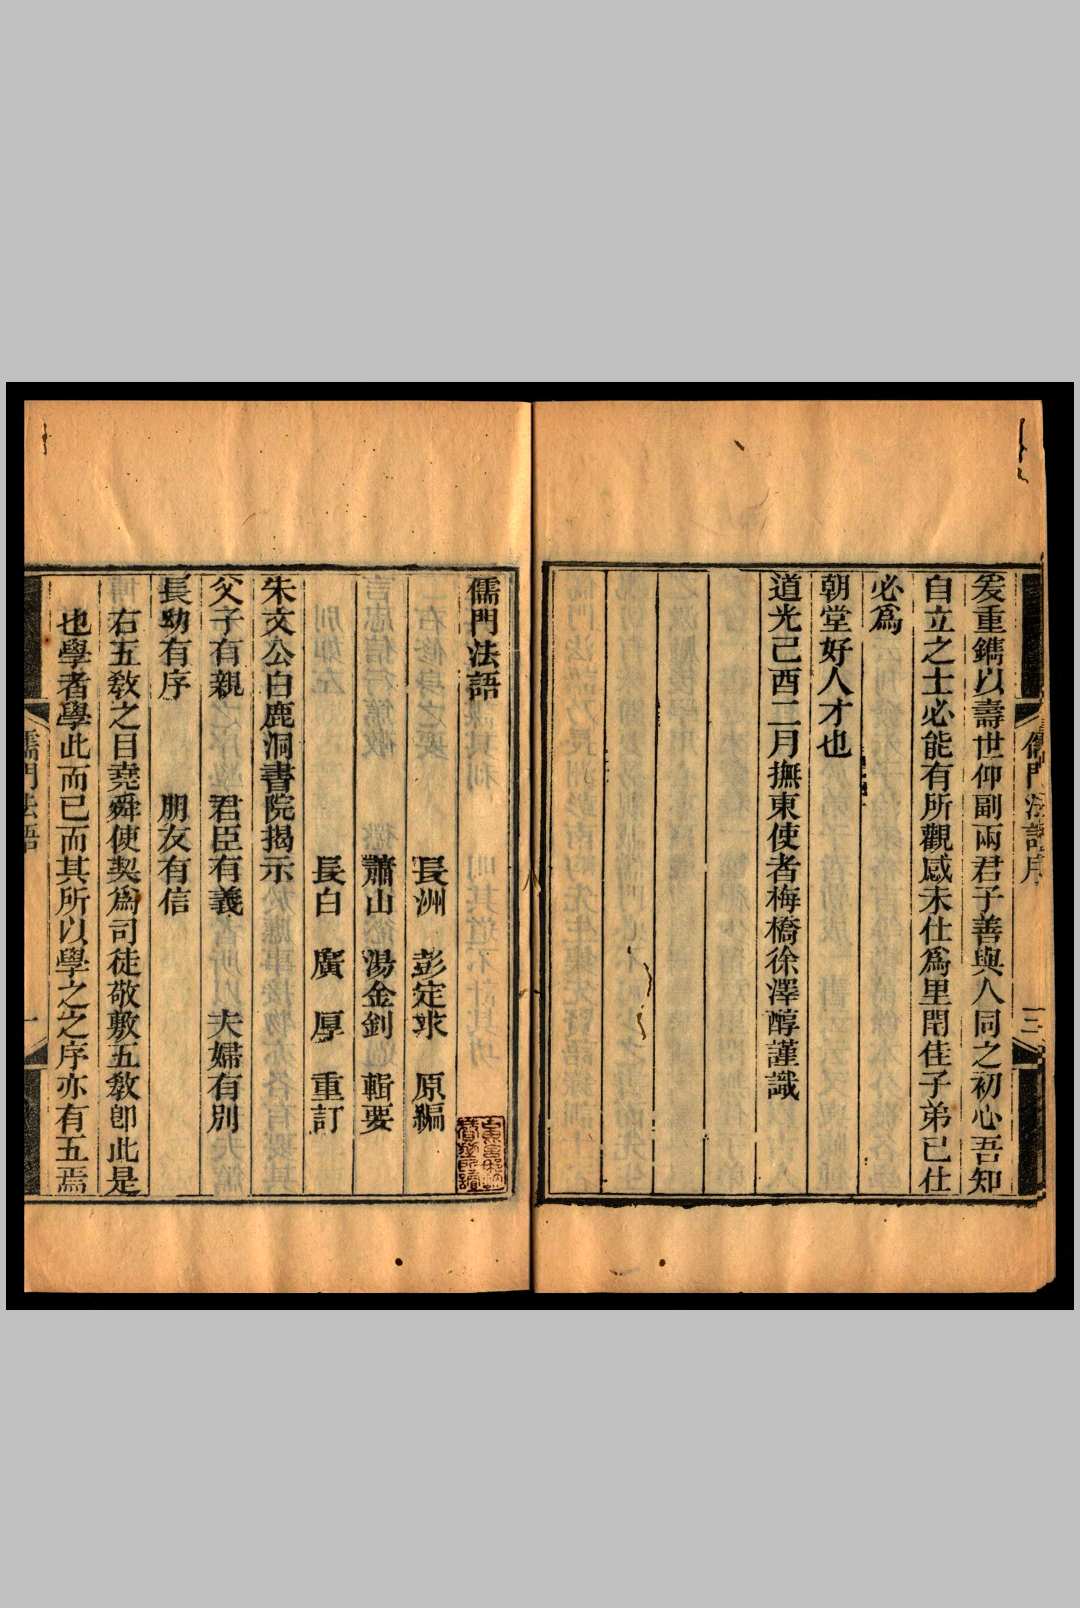 爰重鐫以壽世仰副兩君子善與人同之初心吾知
自立之士必能有所觀感未仕爲里閈佳子弟已仕
必爲
朝堂好人才也
道光己酉二月撫東使者梅橋徐澤醇謹識
儒門法語序
三
儒門法語
長洲 彭定求 原編
蕭山 湯金釗 輯要
長白 廣厚 重訂
朱文公白鹿洞書院揭示
父子有親 君臣有義 夫婦有別
長幼有序 朋友有信
右五敎之目堯舜使契爲司徒敬敷五敎卽此是
也學者學此而已而其所以學之之序亦有五焉
儒門法語
一